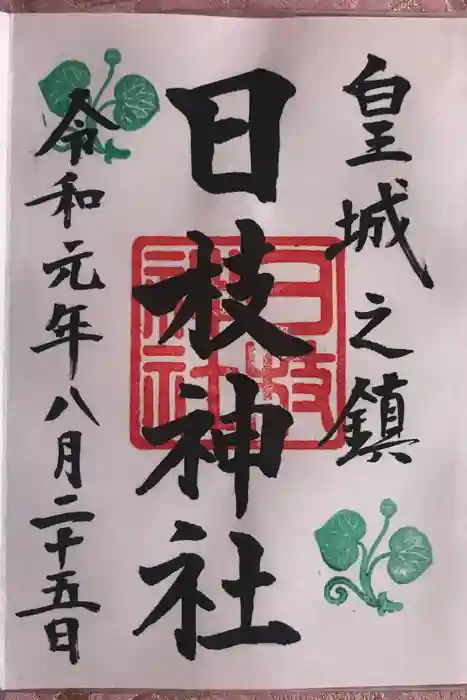 皇城之鎮
日枝神社
令和元年八月二十五日
日枝神社